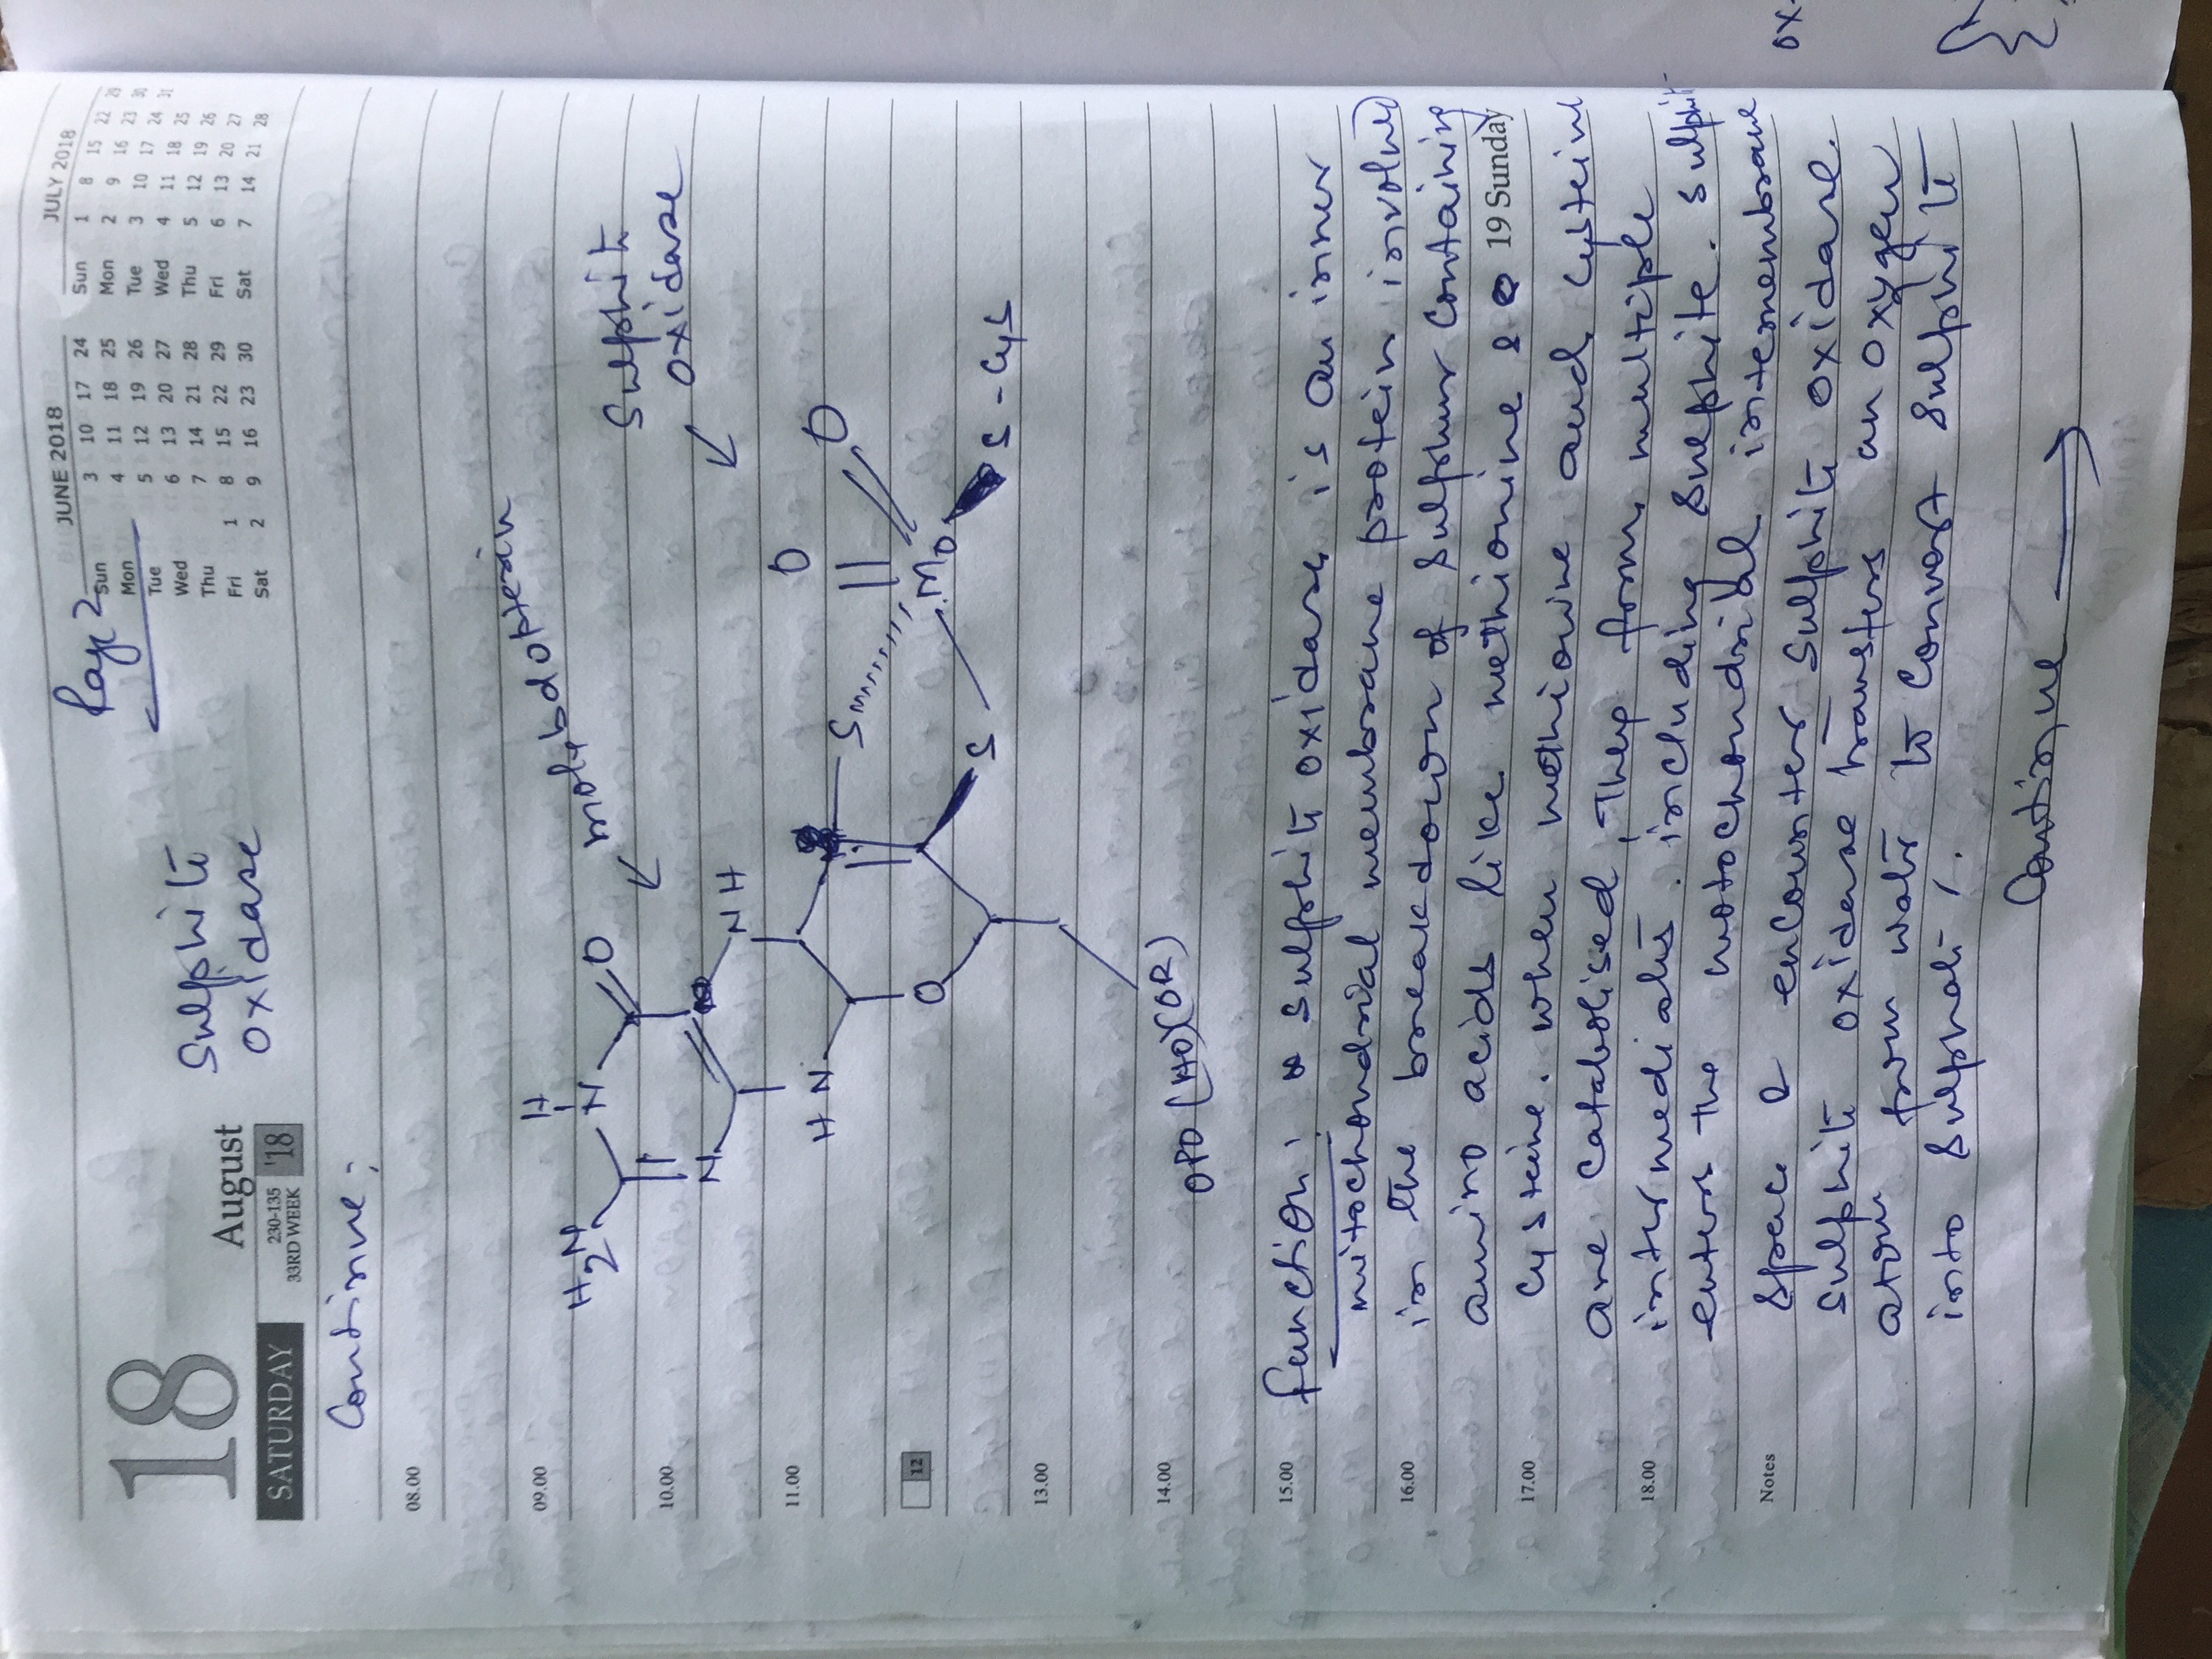 18
SATURDAY
August
230-135
33RD WEEK '18
Page 2
Sulphite
oxidase
JUNE 2018
Sun 3 10 17 24
Mon 4 11 18 25
Tue 5 12 19 26
Wed 6 13 20 27
Thu 7 14 21 28
Fri 1 8 15 22 29
Sat 2 9 16 23 30
JULY 2018
Sun 1 8 15 22 29
Mon 2 9 16 23 30
Tue 3 10 17 24 31
Wed 4 11 18 25
Thu 5 12 19 26
Fri 6 13 20 27
Sat 7 14 21 28
Continue:
08.00
09.00
10.00
11.00
12
13.00
14.00
15.00
16.00
17.00
18.00
Notes
molybdopterin
Sulphite
oxidase
H
H2N
N
O
N
NH
HN
O
S
S
O
O
Mo
S-Cys
OPO(HO)(OR)
function: Sulphite oxidase, is an inner
mitochondrial membrane protein involve
in the breakdown of Sulphur containing
amino acids like methionine &
19 Sunday
Cysteine. when methionine and Cysteine
are Catabolised, They form multiple
intermediates including Sulphite. Sulphit-
enters the motochondrial intermembrane
Space & encounter Sulphite oxidase.
Sulphite oxidase transfers an oxygen
atom from water to Convert Sulphite
into Sulphate.
Continue
ox-